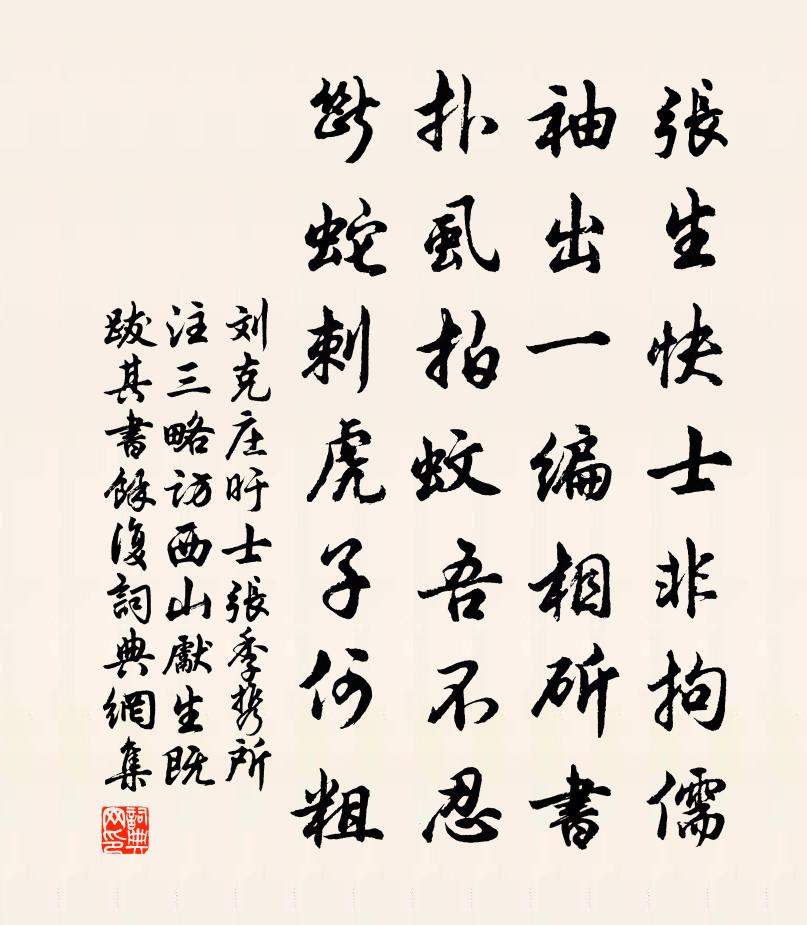 張生快士非拘儒
袖出一编相斫書
扑虱拍蚊吾不忍
斷蛇刺虎子何粗
刘克庄旴士張季携所
注三略访西山獻生既
跋其書餘復詞典網集
詞典
网印